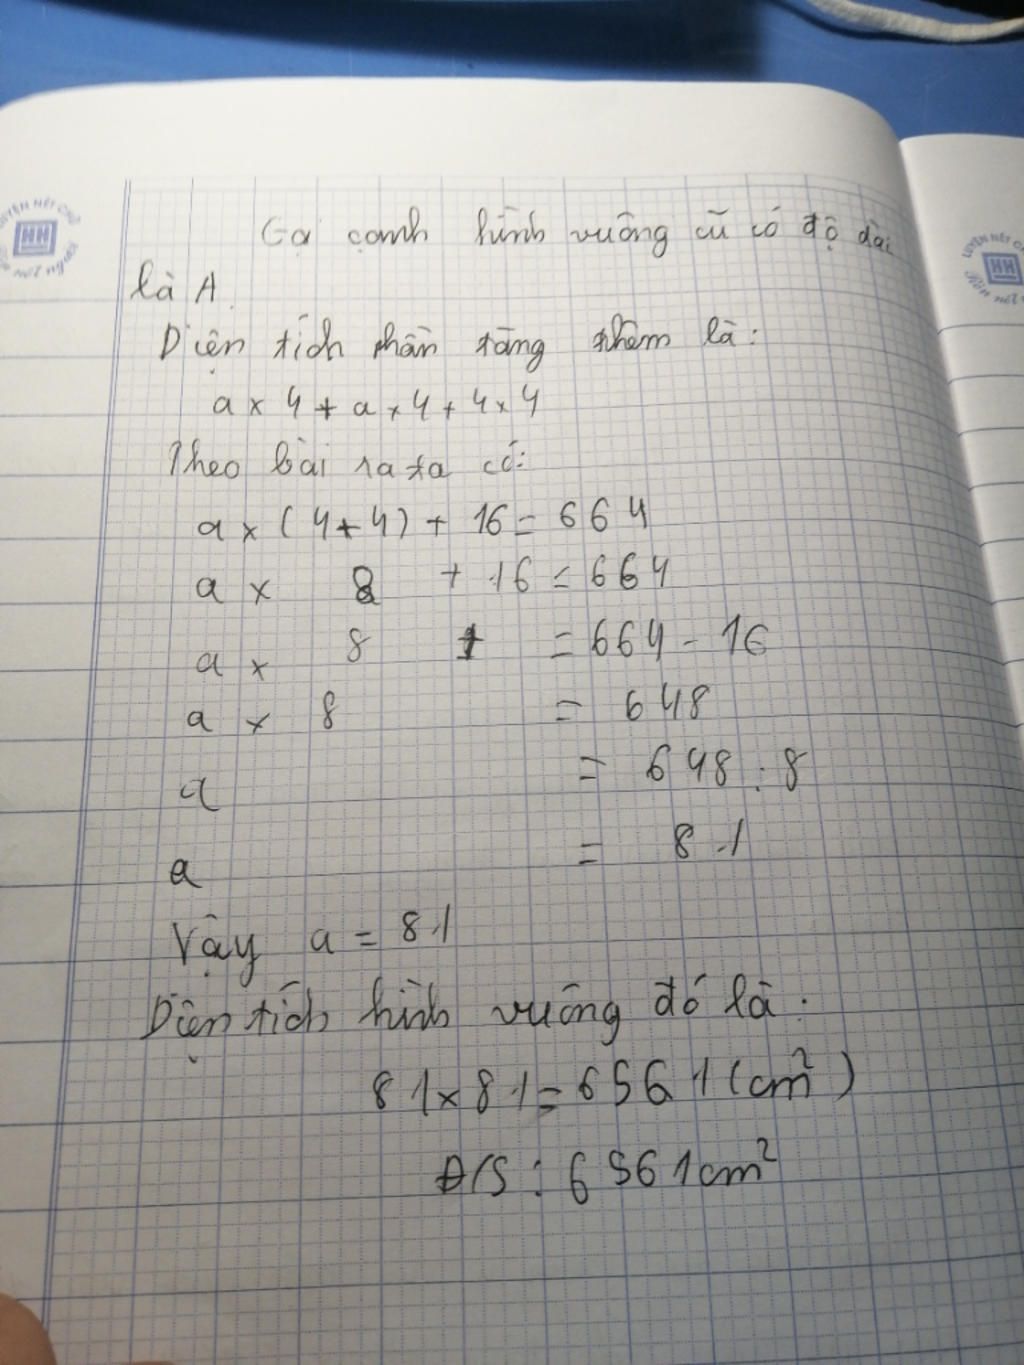 Gọi cạnh hình vuông cũ có độ dài
là A.
Diện tích phần tăng thêm là:
a × 4 + a × 4 + 4 × 4
Theo bài ra ta có:
a × (4 + 4) + 16 = 664
a × 8 + 16 = 664
a × 8 = 664 - 16
a × 8 = 648
a = 648 : 8
a = 81
Vậy a = 81
Diện tích hình vuông đó là:
81 × 81 = 6561 (cm²)
Đ/S : 6561cm²
LUYỆN NÉT CHỮ
HH
LUYỆN NÉT CHỮ
HH